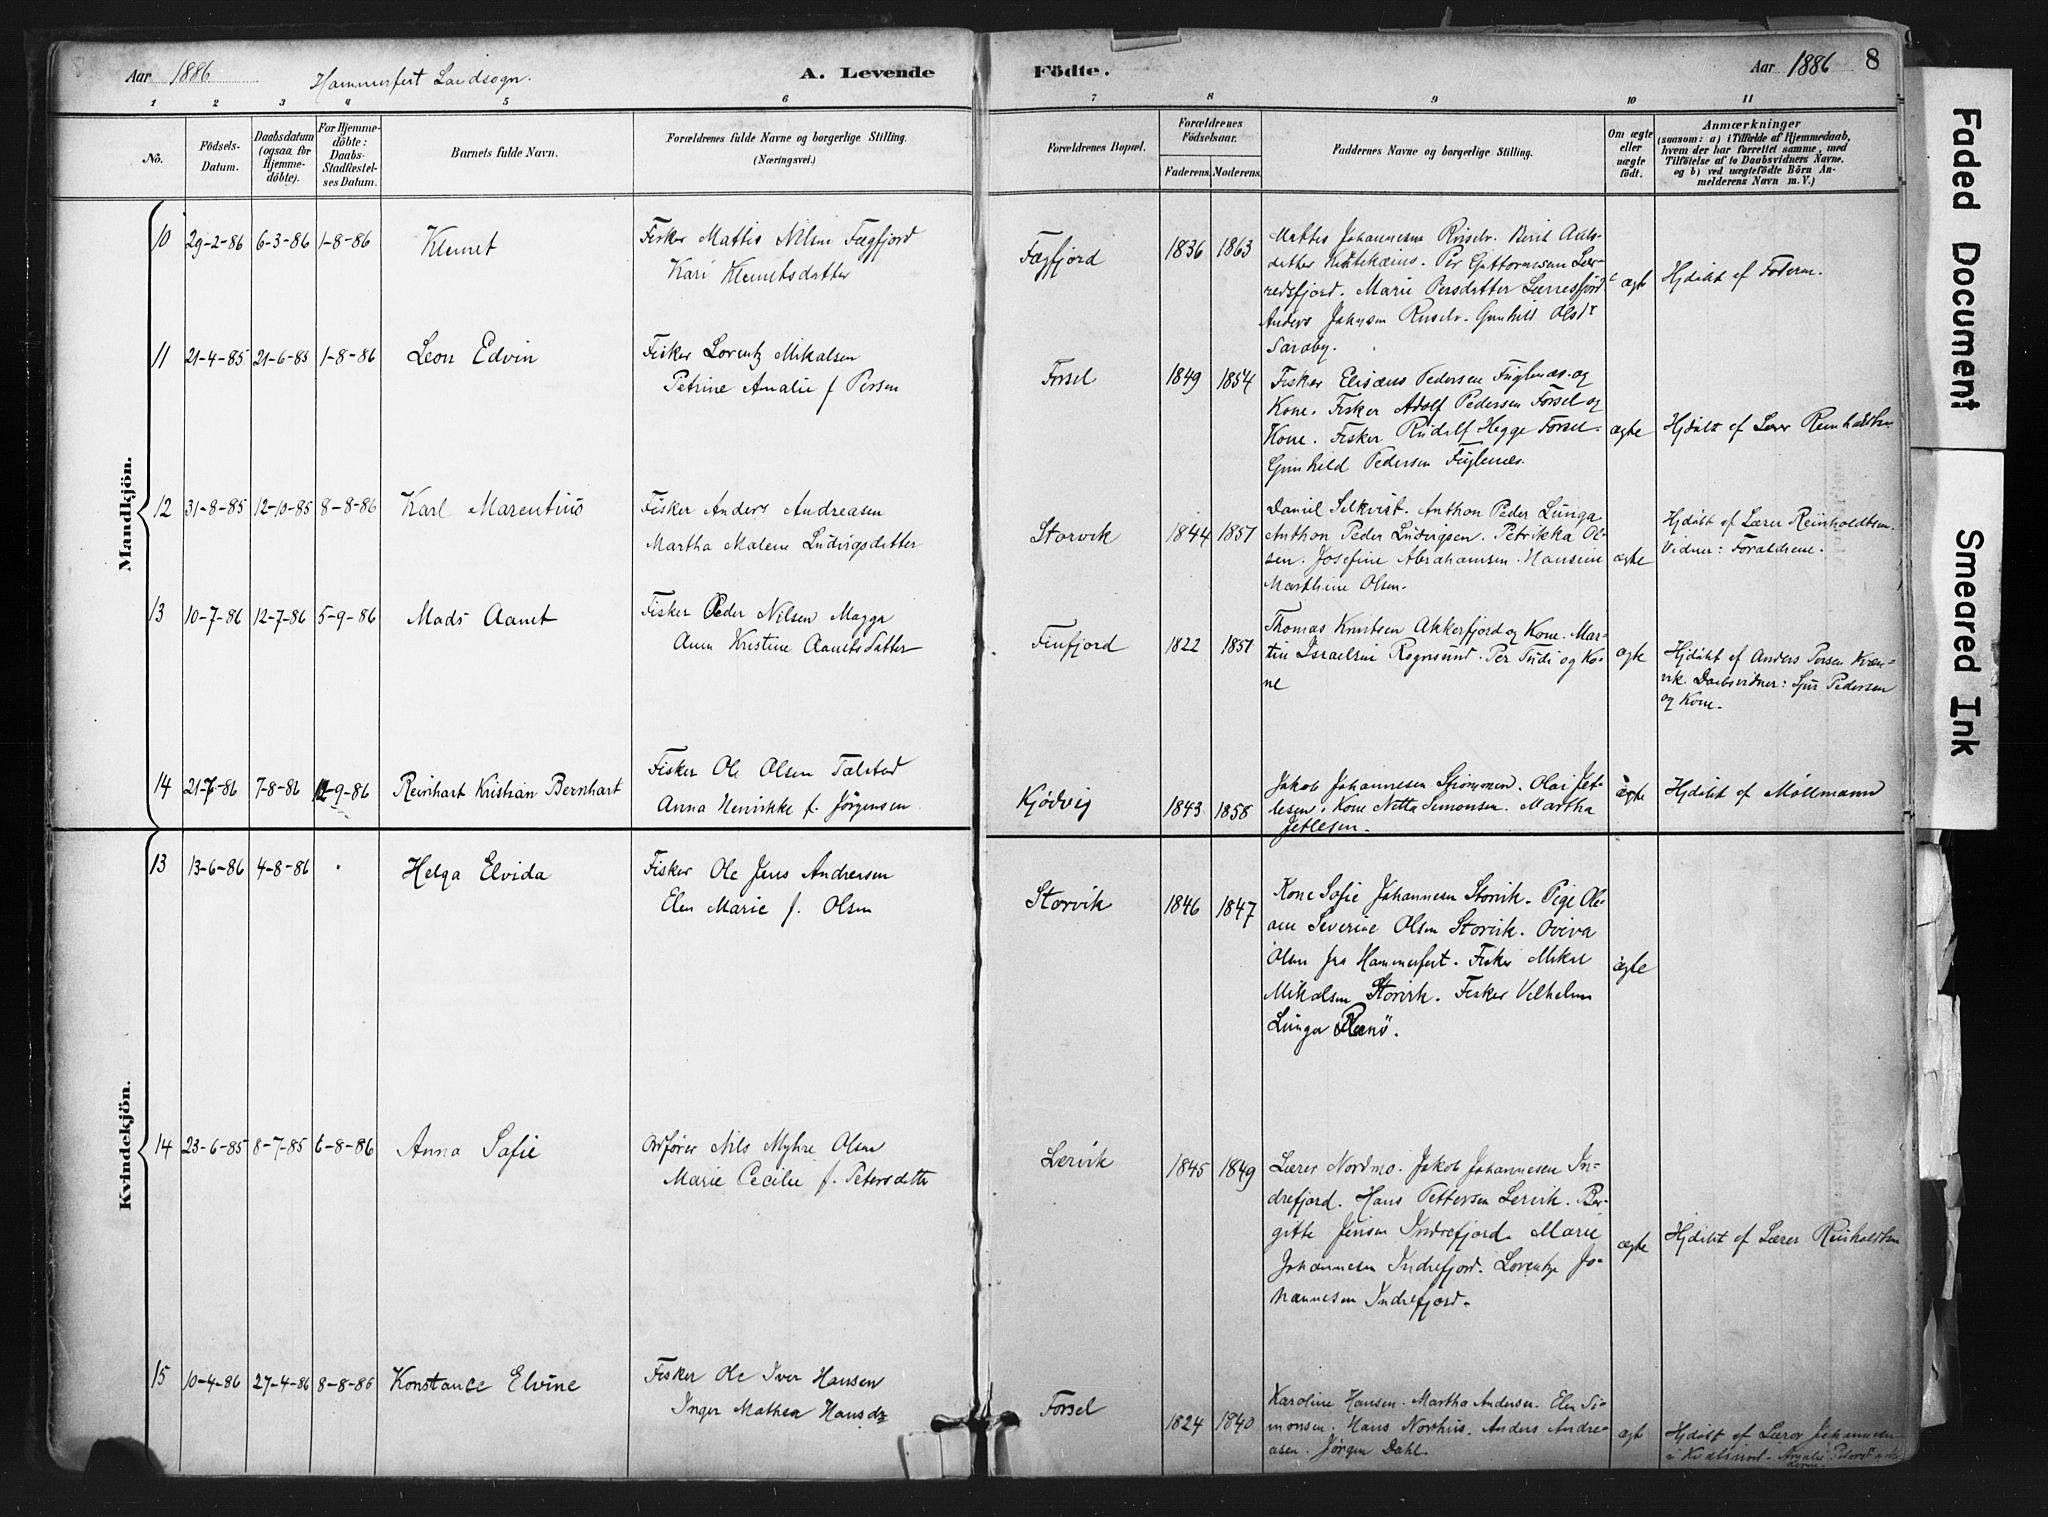 Aar 1886 Hammerfest Landsogn. A. Levende Födte. Aar 1886 8
1 2 3 4 5 6 7 8 9 10 11
No.
Födsels-
Datum.
Daabsdatum
(ogsaa for
Hjemme-
döbte).
For Hjemme-
döbte:
Daabs-
Stadfæstel-
ses Datum.
Barnets fulde Navn.
Forældrenes fulde Navne og borgerlige Stilling.
(Næringsvei.)
Forældrenes Bopæl.
Forældrenes
Födselsaar.
Faderens. Moderens.
Faddernes Navne og borgerlige Stilling.
Om ægte
eller
uægte
födt.
Anmærkninger
(saasom: a) i Tilfælde af Hjemmedaab,
hvem der har forrettet samme, med
Tilföielse af to Daabsvidners Navne,
og b) ved uægtefödte Börn An-
melderens Navn m. V.)
Mandkjön.
10 29-2-86 6-3-86 1-8-86 Klemet
Fisker Mattis Nilsen Fægfjord
Kari Klemetsdatter
Fægfjord 1836 1863
Mattis Johannesen Riselv. Berit Ant-
datter Kautokeino. Per Guttormsen Ler-
redsfjord. Marie Persdatter Lerresfjord
Anders Johnsen Riselv. Gunhild Olsdr
Saraby.
ægte Hjdöbt af Faderen.
11 21-4-85 21-6-85 1-8-86 Leon Edvin
Fisker Lorentz Mikalsen
Petrine Amalie f Persen
Forsøl 1849 1854
Fisker Elisæus Pedersen Fuglenæs og
Kone. Fisker Adolf Pedersen Forsøl og
Kone. Fisker Rudolf Hegge Forsøl.
Gunhild Pedersen Fuglenæs.
ægte Hjdöbt af Lærer Reinholdtsen
12 31-8-85 12-10-85 8-8-86 Karl Marentius
Fisker Anders Andreasen
Martha Malene Ludvigsdatter
Storvik 1844 1857
Daniel Selkvist. Anthon Peder Lunga
Anthon Peder Ludvigsen. Petrikka Ol-
sen. Josefine Abrahamsen. Hansine
Marthine Olsen.
ægte Hjdöbt af Lærer Reinholdtsen.
Vidner: Forældrene.
13 10-7-86 12-7-86 5-9-86 Mads Aanet
Fisker Peder Nilsen Magga
Anen Kristine Aanetsdatter
Finfjord 1822 1857
Thomas Knutsen Akkerfjord og Kone. Mar-
tin Israelsen Rognsund. Per Tudi og Ko-
ne
ægte Hjdöbt af Anders Persen Kvæn-
vik. Daabsvidner: Sjur Pedersen
og Kone.
14 21-7-86 7-8-86 12-9-86 Reinhart Kristian Bernhart
Fisker Ole Olsen Talstad
Anna Henrikke f. Jörgensen
Kjødvig 1843 1858
Jakob Johannesen Simonsen. Olai Jet-
lesen. Kone Netta Simonsen. Martha
Jetlesen.
ægte Hjdöbt af Möllmann
Kvindekjön.
13 13-6-86 4-8-86 Helga Elvida
Fisker Ole Jens Andreasen
Elen Marie f. Olsen
Storvik 1846 1847
Kone Sofie Johannesen Storvik. Pige Ole-
ane Severine Olsen Storvik. Oviva
Olsen fra Hammerfest. Fisker Mikal
Mikalsen Storvik. Fisker Vilhelm
Lunga Renö.
ægte
14 23-6-85 8-7-85 6-8-86 Anna Sofie
Ordfører Nils Myhre Olsen
Marie Cecilie f. Petersdatter
Lervik 1845 1849
Lærer Nordmo. Jakob Johannesen In-
drefjord. Hans Pettersen Lervik. Ber-
gitte Jensen Indrefjord Marie
Johannesen Indrefjord. Lorentze Jo-
hannesen Indrefjord.
ægte Hjdöbt af Lærer Reinholdtsen
15 10-4-86 27-4-86 8-8-86 Konstance Elvine
Fisker Ole Iver Hansen
Inger Mathea Hansdr
Forsøl 1824 1840
Karoline Hansen. Martha Andersen. Elen Si-
monsen. Hans Northus. Anders Andre-
asen. Jørgen Dahl.
ægt Hjdöbt af Lærer Johannesen
i Kvalsund.
Faded Document
Smeared Ink